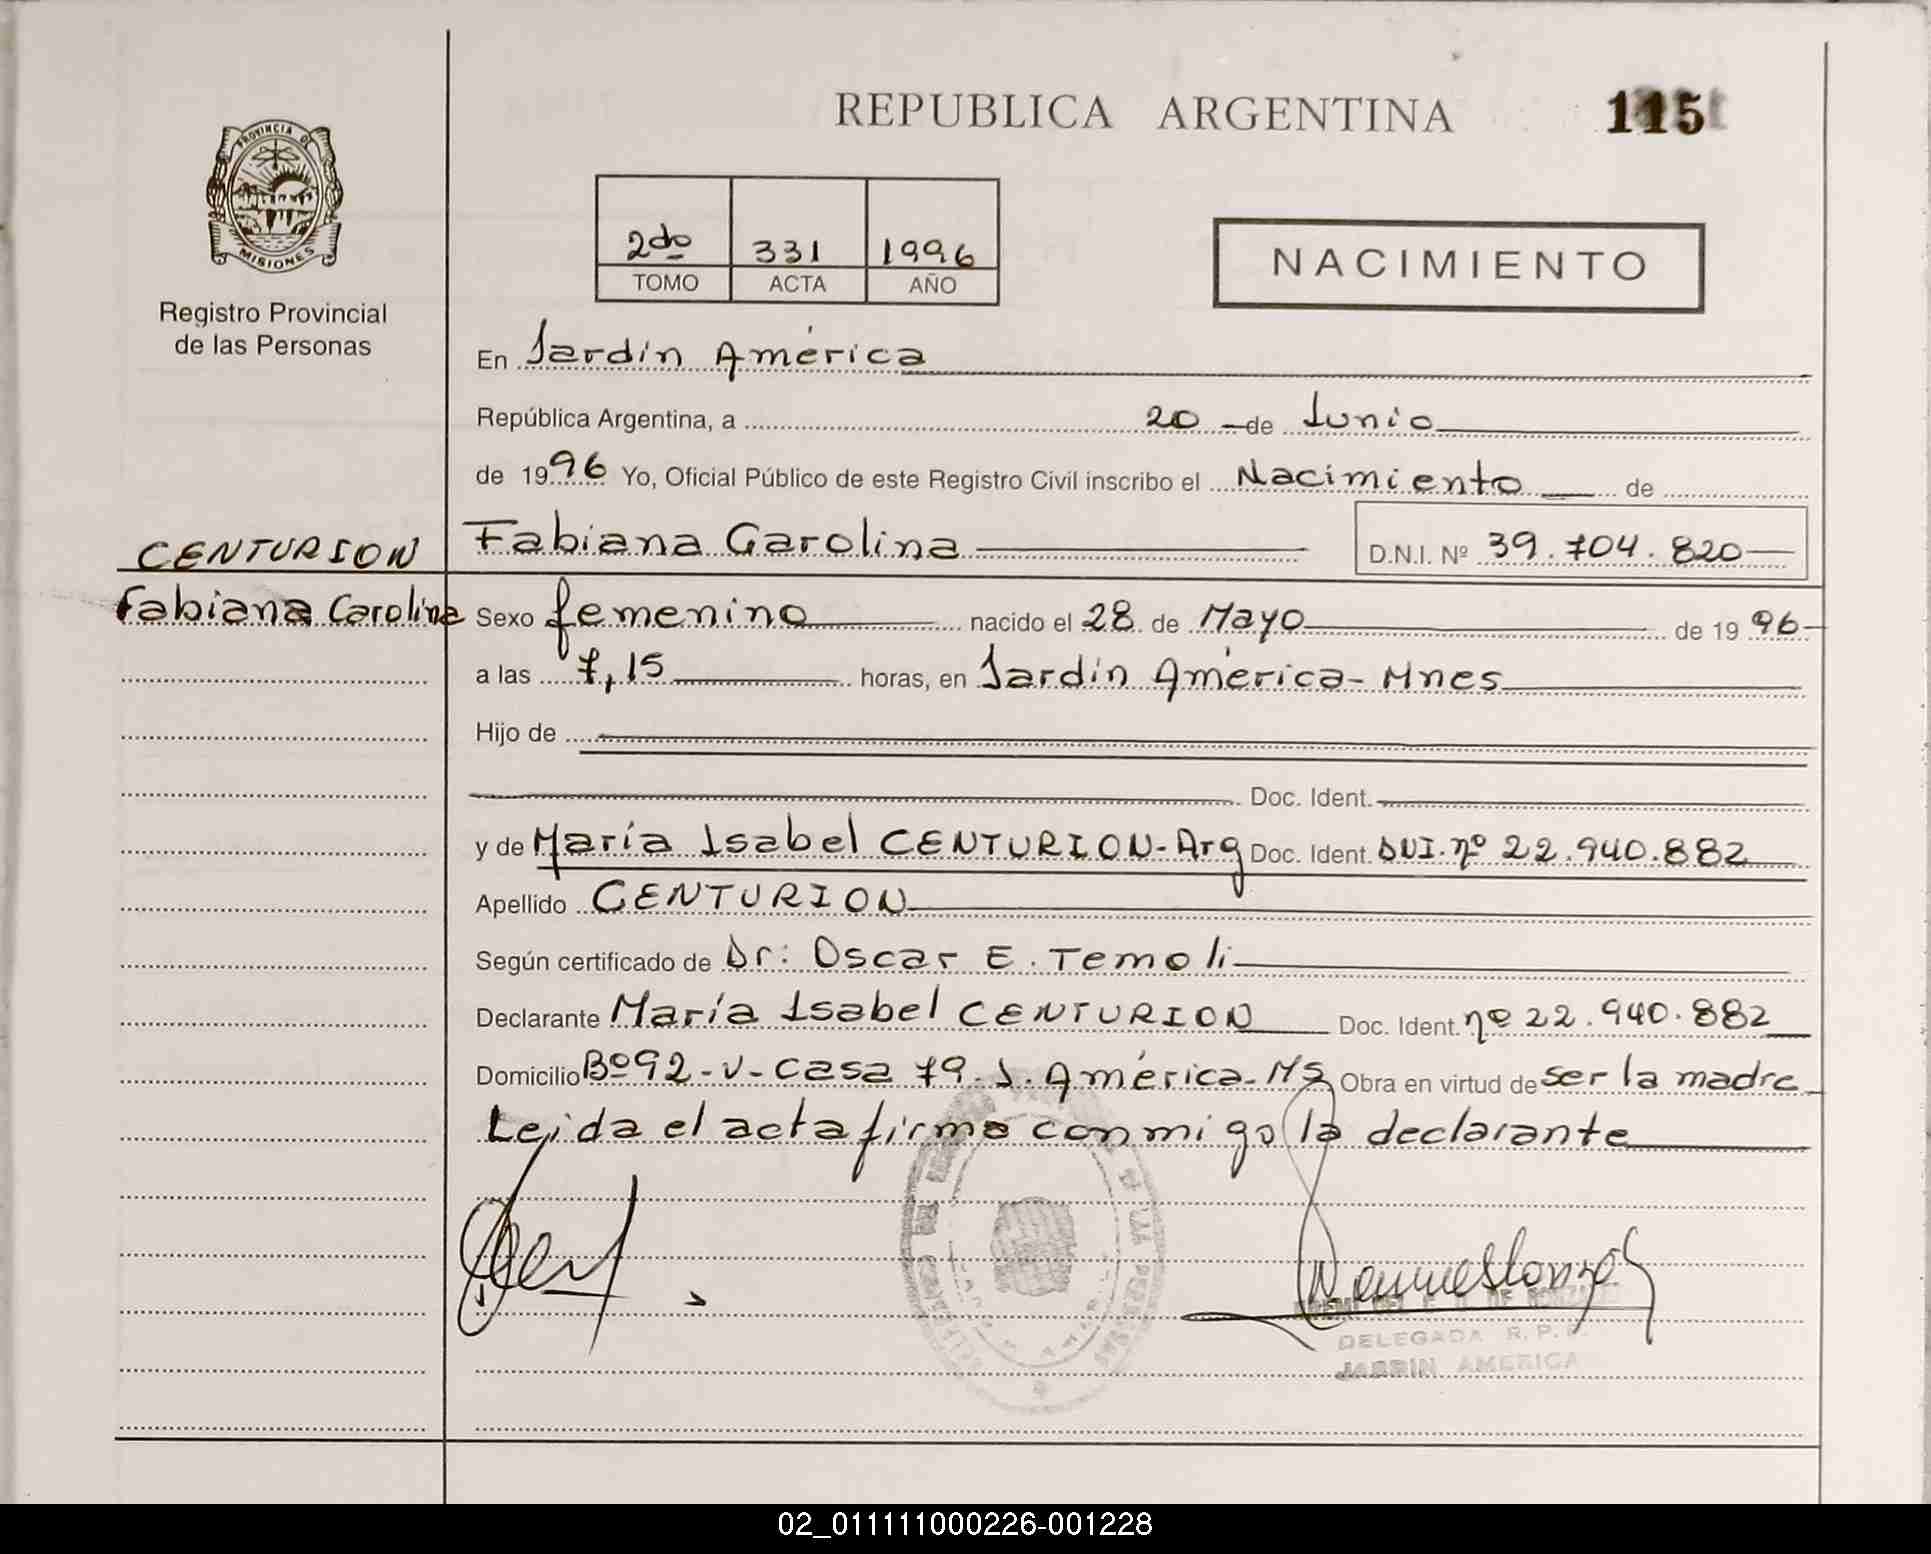 REPUBLICA ARGENTINA 115
PROVINCIA DE
MISIONES
Registro Provincial
de las Personas
2do 331 1996
TOMO ACTA AÑO
NACIMIENTO
En Jardín América
República Argentina, a 20 de Junio
de 1996 Yo, Oficial Público de este Registro Civil inscribo el Nacimiento de
CENTURION Fabiana Carolina D.N.I. Nº 39.704.820
Fabiana Carolina Sexo femenino nacido el 28 de Mayo de 1996
a las 7,15 horas, en Jardín América - Mnes
Hijo de
Doc. Ident.
y de María Isabel CENTURION - Arg Doc. Ident. DNI. nº 22.940.882
Apellido CENTURION
Según certificado de Dr: Oscar E. Temoli
Declarante María Isabel CENTURION Doc. Ident. nº 22.940.882
Domicilio Bº 92-V- Casa 79. J. América - Ms Obra en virtud de ser la madre
Leida el acta firma conmigo la declarante
DE GONZALEZ
DELEGADA R.P.P.
JARDIN AMERICA
02_011111000226-001228